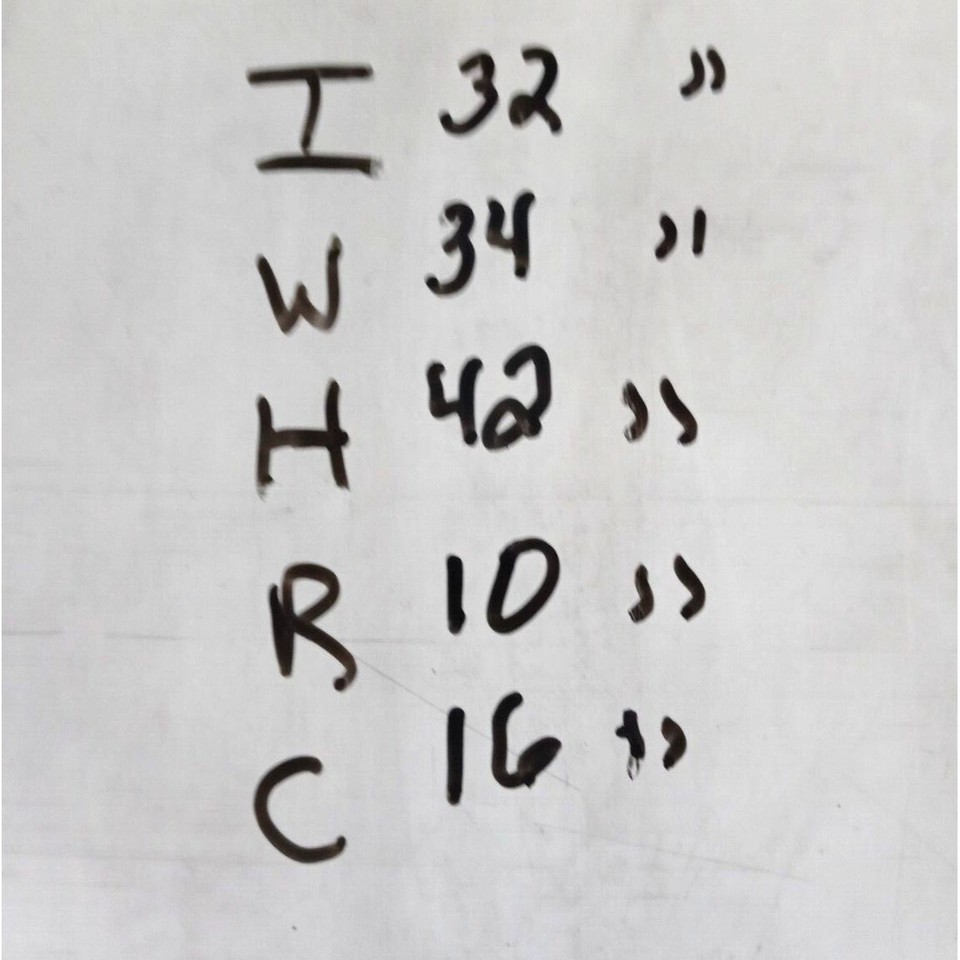 I 32 "
W 34 "
H 42 "
R 10 "
C 16 "